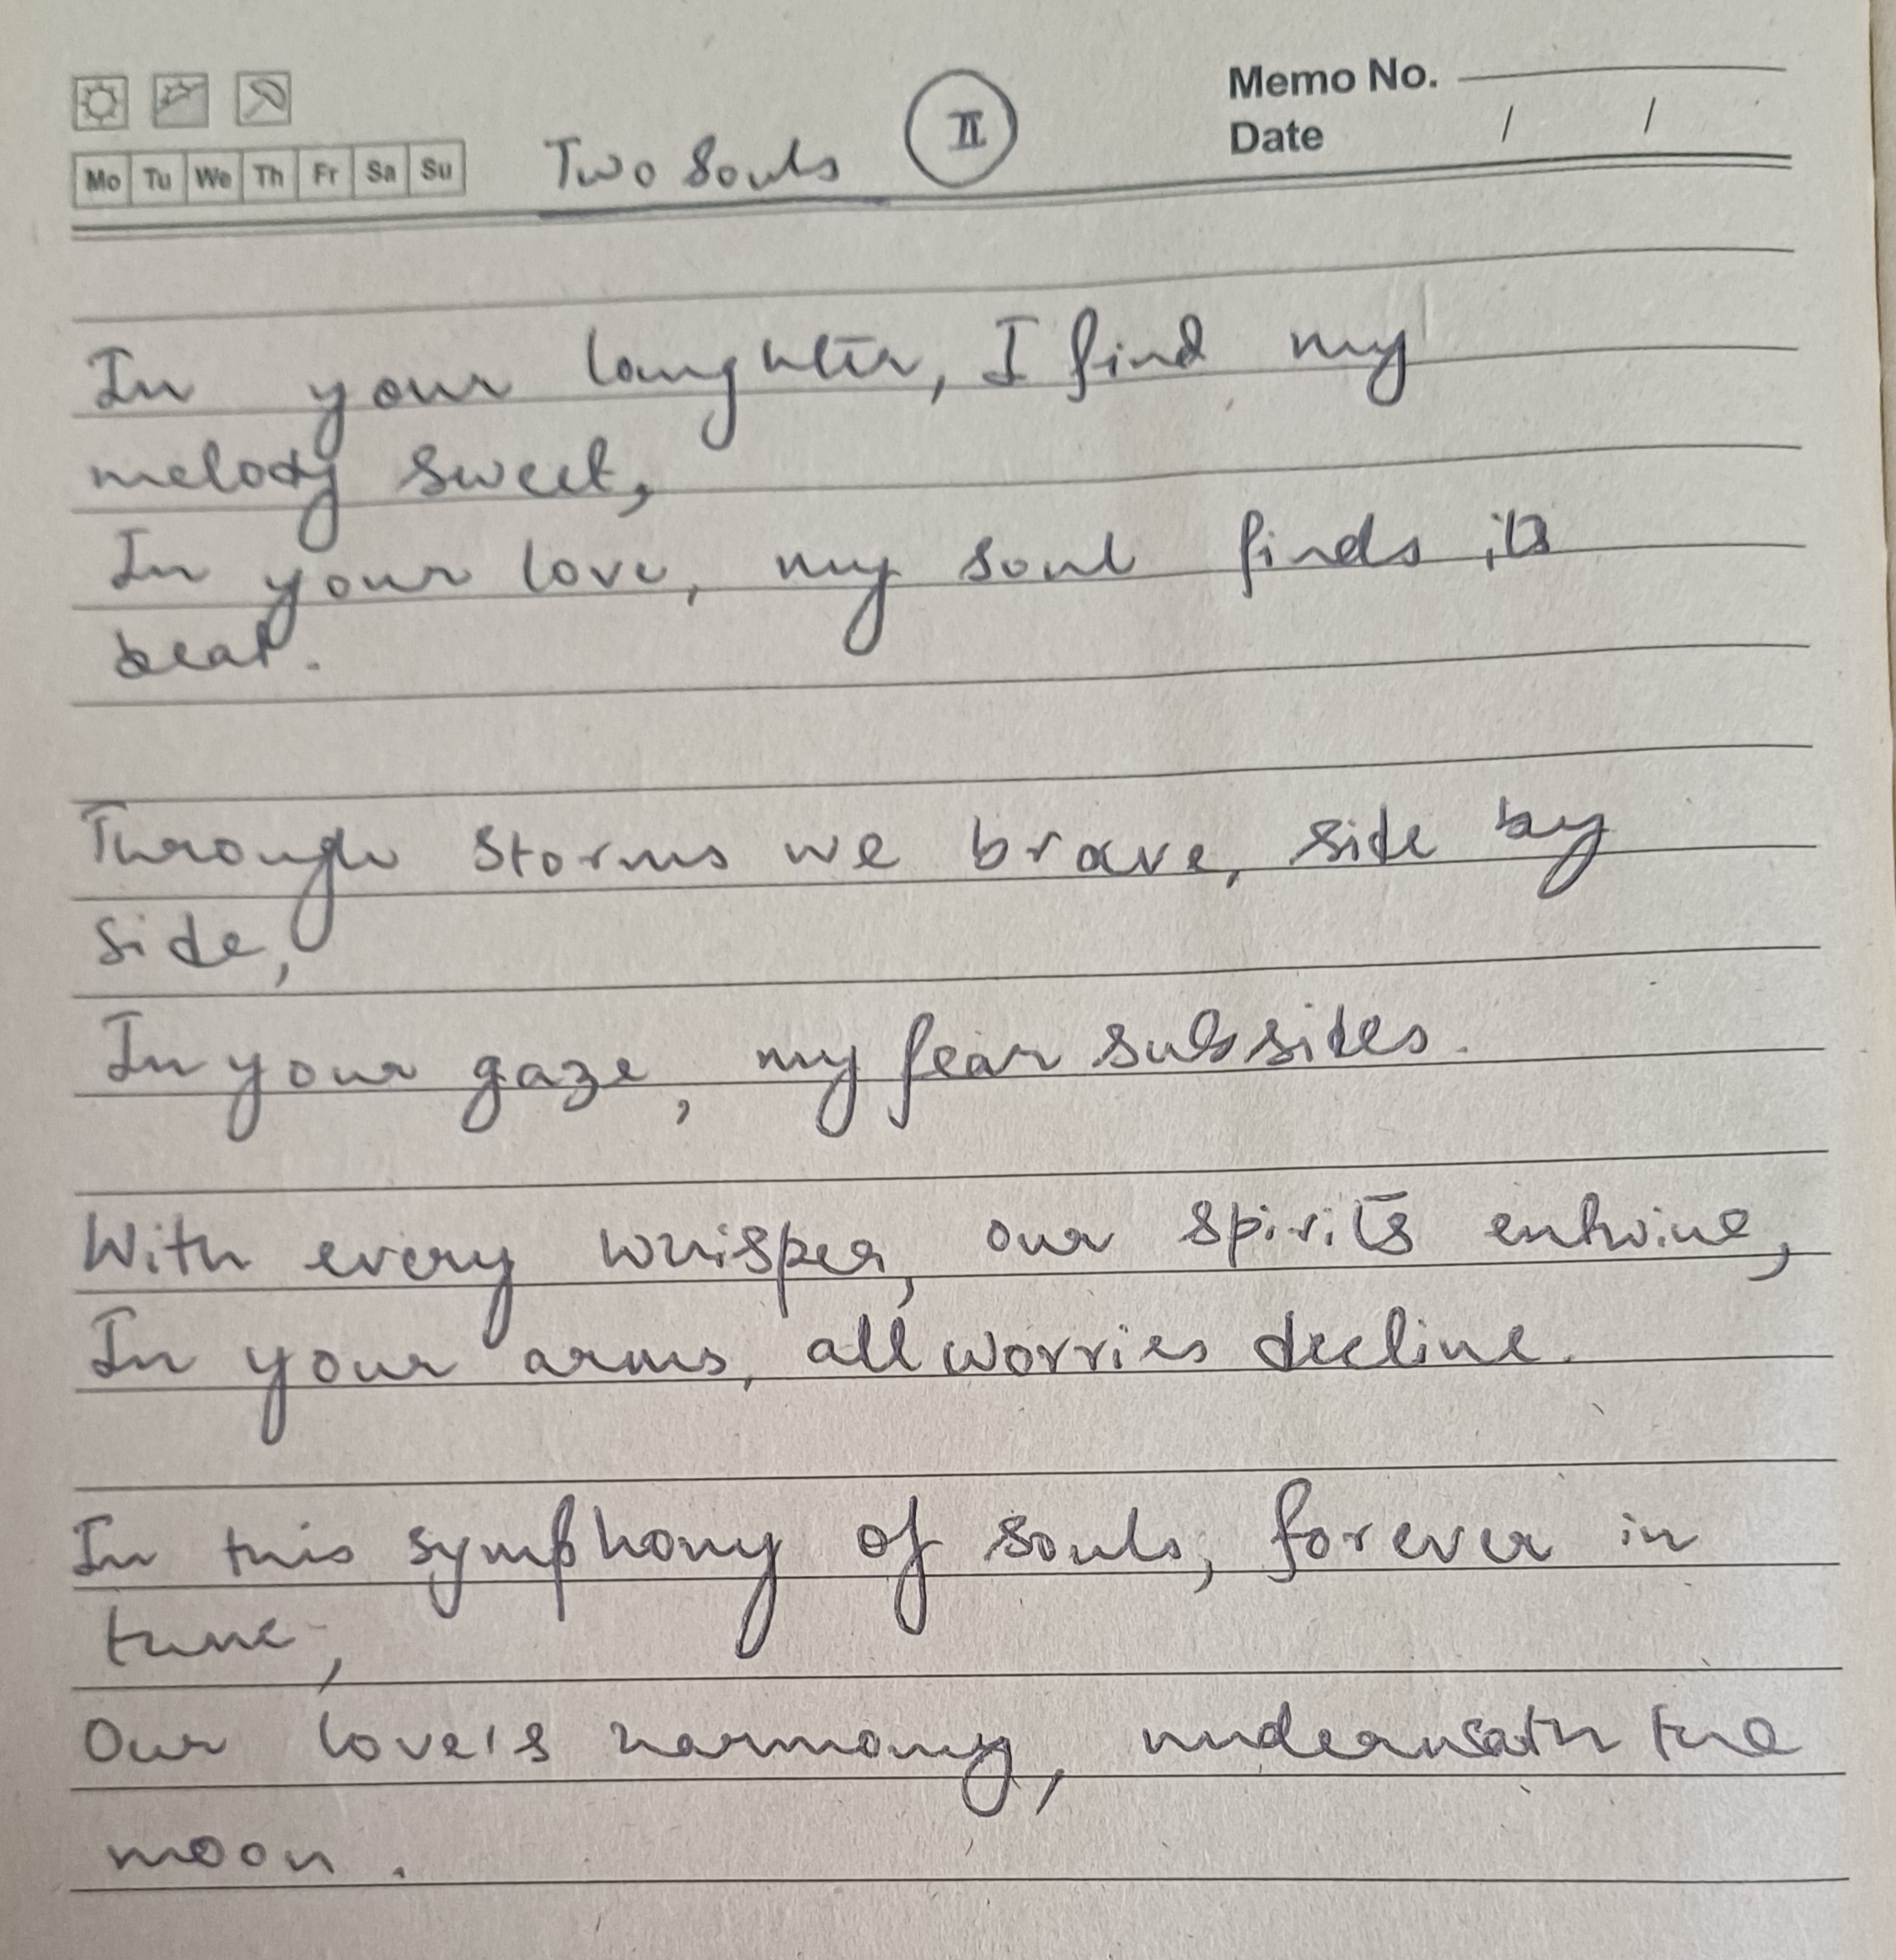 Memo No.
Two Souls II
Date / /
Mo Tu We Th Fr Sa Su
In your laughter, I find my
melody sweet,
In your love, my soul finds its
beat.
Through storms we brave, side by
side,
In your gaze, my fear subsides.
With every whisper, our spirits entwine,
In your arms, all worries decline.
In this symphony of souls, forever in
tune,
Our love's harmony, underneath the
moon.